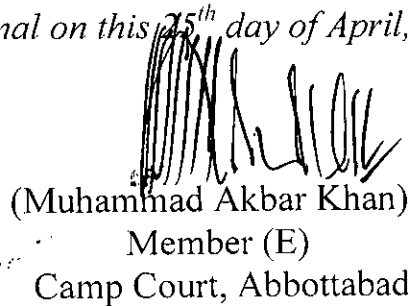 nal on this 25th day of April,
(Muhammad Akbar Khan)
Member (E)
Camp Court, Abbottabad